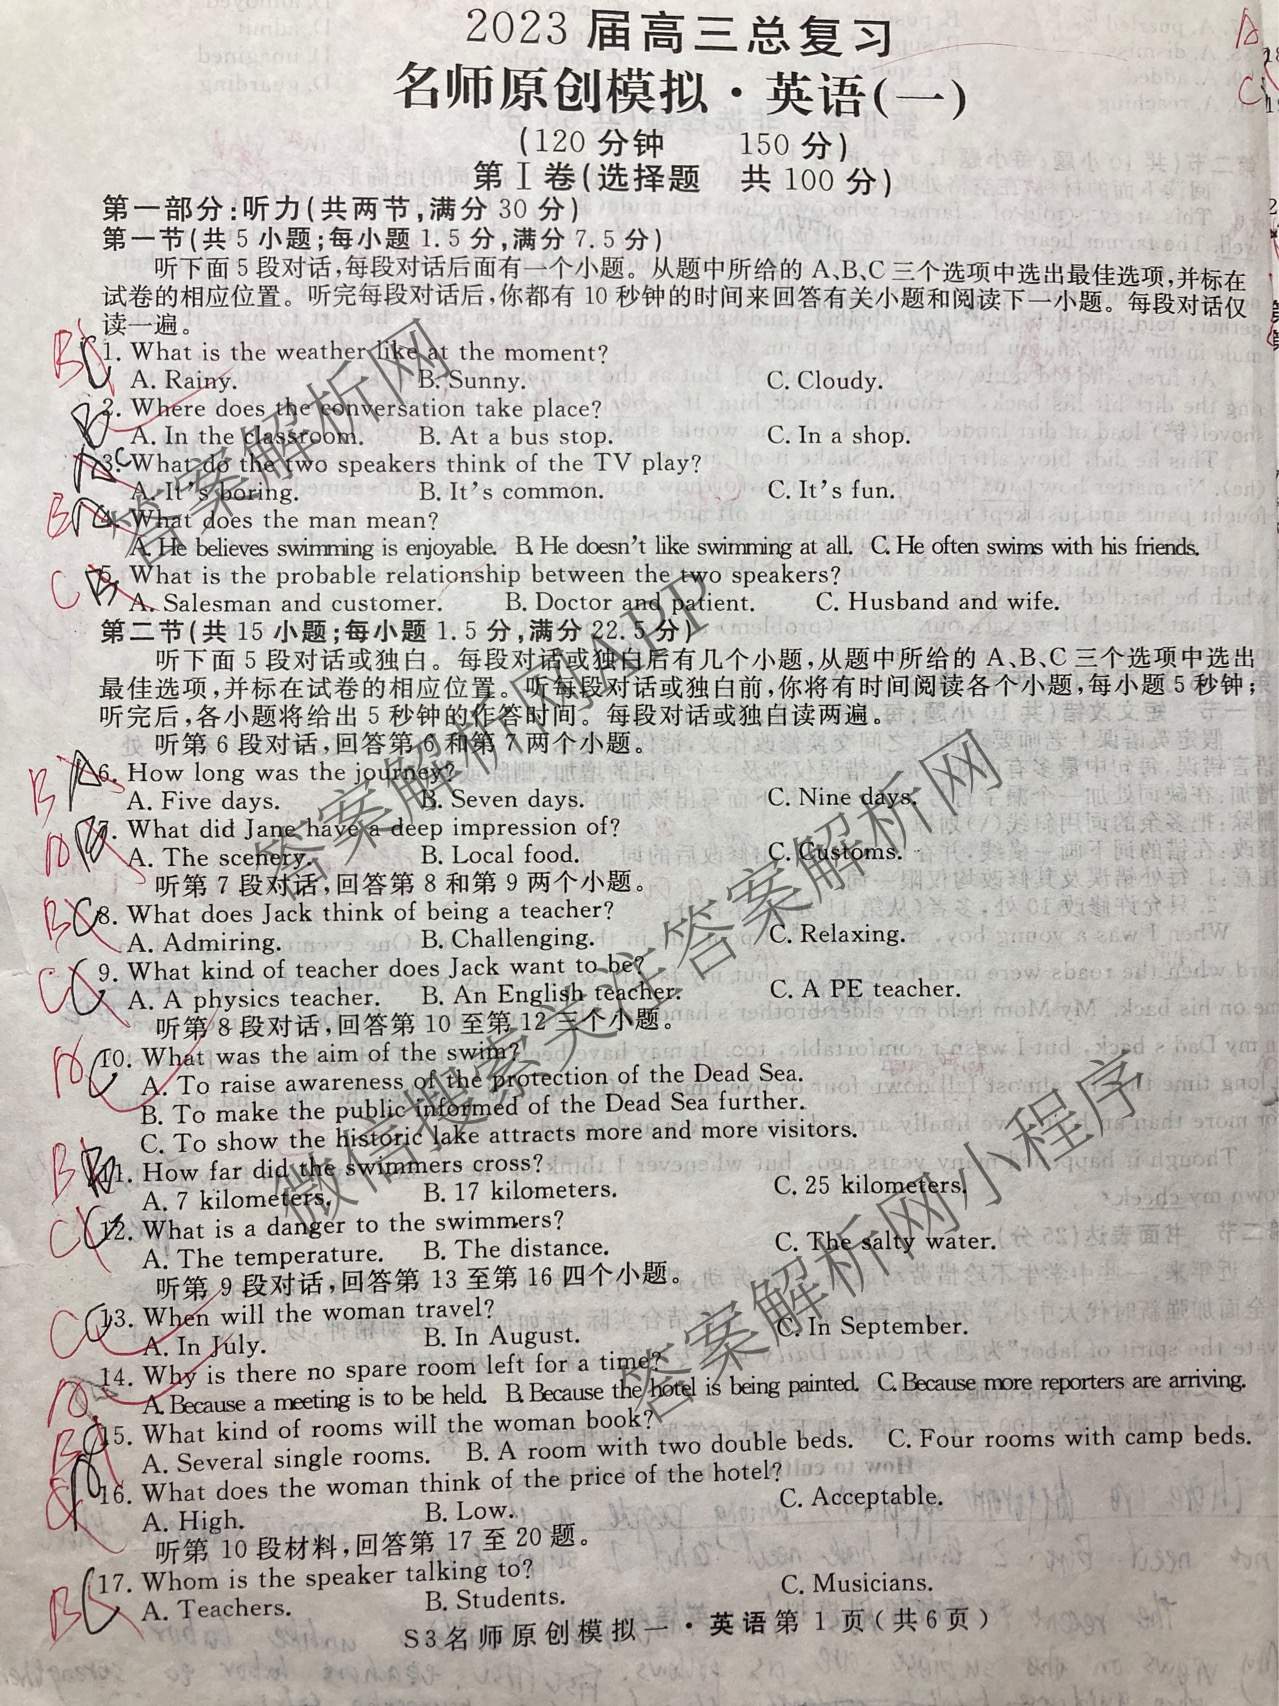 2023 届高三总复习
名师原创模拟·英语(一)
(120 分钟 150 分)
第 I 卷(选择题 共 100 分)
第一部分:听力(共两节,满分 30 分)
第一节(共 5 小题;每小题 1.5 分,满分 7.5 分)
听下面 5 段对话,每段对话后面有一个小题。从题中所给的 A、B、C 三个选项中选出最佳选项,并标在
试卷的相应位置。听完每段对话后,你都有 10 秒钟的时间来回答有关小题和阅读下一小题。每段对话仅
读一遍。
1. What is the weather like at the moment?
A. Rainy. B. Sunny. C. Cloudy.
2. Where does the conversation take place?
A. In the classroom. B. At a bus stop. C. In a shop.
3. What do the two speakers think of the TV play?
A. It's boring. B. It's common. C. It's fun.
4. What does the man mean?
A. He believes swimming is enjoyable. B. He doesn't like swimming at all. C. He often swims with his friends.
5. What is the probable relationship between the two speakers?
A. Salesman and customer. B. Doctor and patient. C. Husband and wife.
第二节(共 15 小题;每小题 1.5 分,满分 22.5 分)
听下面 5 段对话或独白。每段对话或独白后有几个小题,从题中所给的 A、B、C 三个选项中选出
最佳选项,并标在试卷的相应位置。听每段对话或独白前,你将有时间阅读各个小题,每小题 5 秒钟;
听完后,各小题将给出 5 秒钟的作答时间。每段对话或独白读两遍。
听第 6 段对话,回答第 6 和第 7 两个小题。
6. How long was the journey?
A. Five days. B. Seven days. C. Nine days.
7. What did Jane have a deep impression of?
A. The scenery. B. Local food. C. Customs.
听第 7 段对话,回答第 8 和第 9 两个小题。
8. What does Jack think of being a teacher?
A. Admiring. B. Challenging. C. Relaxing.
9. What kind of teacher does Jack want to be?
A. A physics teacher. B. An English teacher. C. A PE teacher.
听第 8 段对话,回答第 10 至第 12 三个小题。
10. What was the aim of the swim?
A. To raise awareness of the protection of the Dead Sea.
B. To make the public informed of the Dead Sea further.
C. To show the historic lake attracts more and more visitors.
11. How far did the swimmers cross?
A. 7 kilometers. B. 17 kilometers. C. 25 kilometers.
12. What is a danger to the swimmers?
A. The temperature. B. The distance. C. The salty water.
听第 9 段对话,回答第 13 至第 16 四个小题。
13. When will the woman travel?
A. In July. B. In August. C. In September.
14. Why is there no spare room left for a time?
A. Because a meeting is to be held. B. Because the hotel is being painted. C. Because more reporters are arriving.
15. What kind of rooms will the woman book?
A. Several single rooms. B. A room with two double beds. C. Four rooms with camp beds.
16. What does the woman think of the price of the hotel?
A. High. B. Low. C. Acceptable.
听第 10 段材料,回答第 17 至 20 题。
17. Whom is the speaker talking to?
A. Teachers. B. Students. C. Musicians.
S3 名师原创模拟一·英语第 1 页(共 6 页)
答案解析网
答案解析网APP
微信搜索关注答案解析网
答案解析网小程序